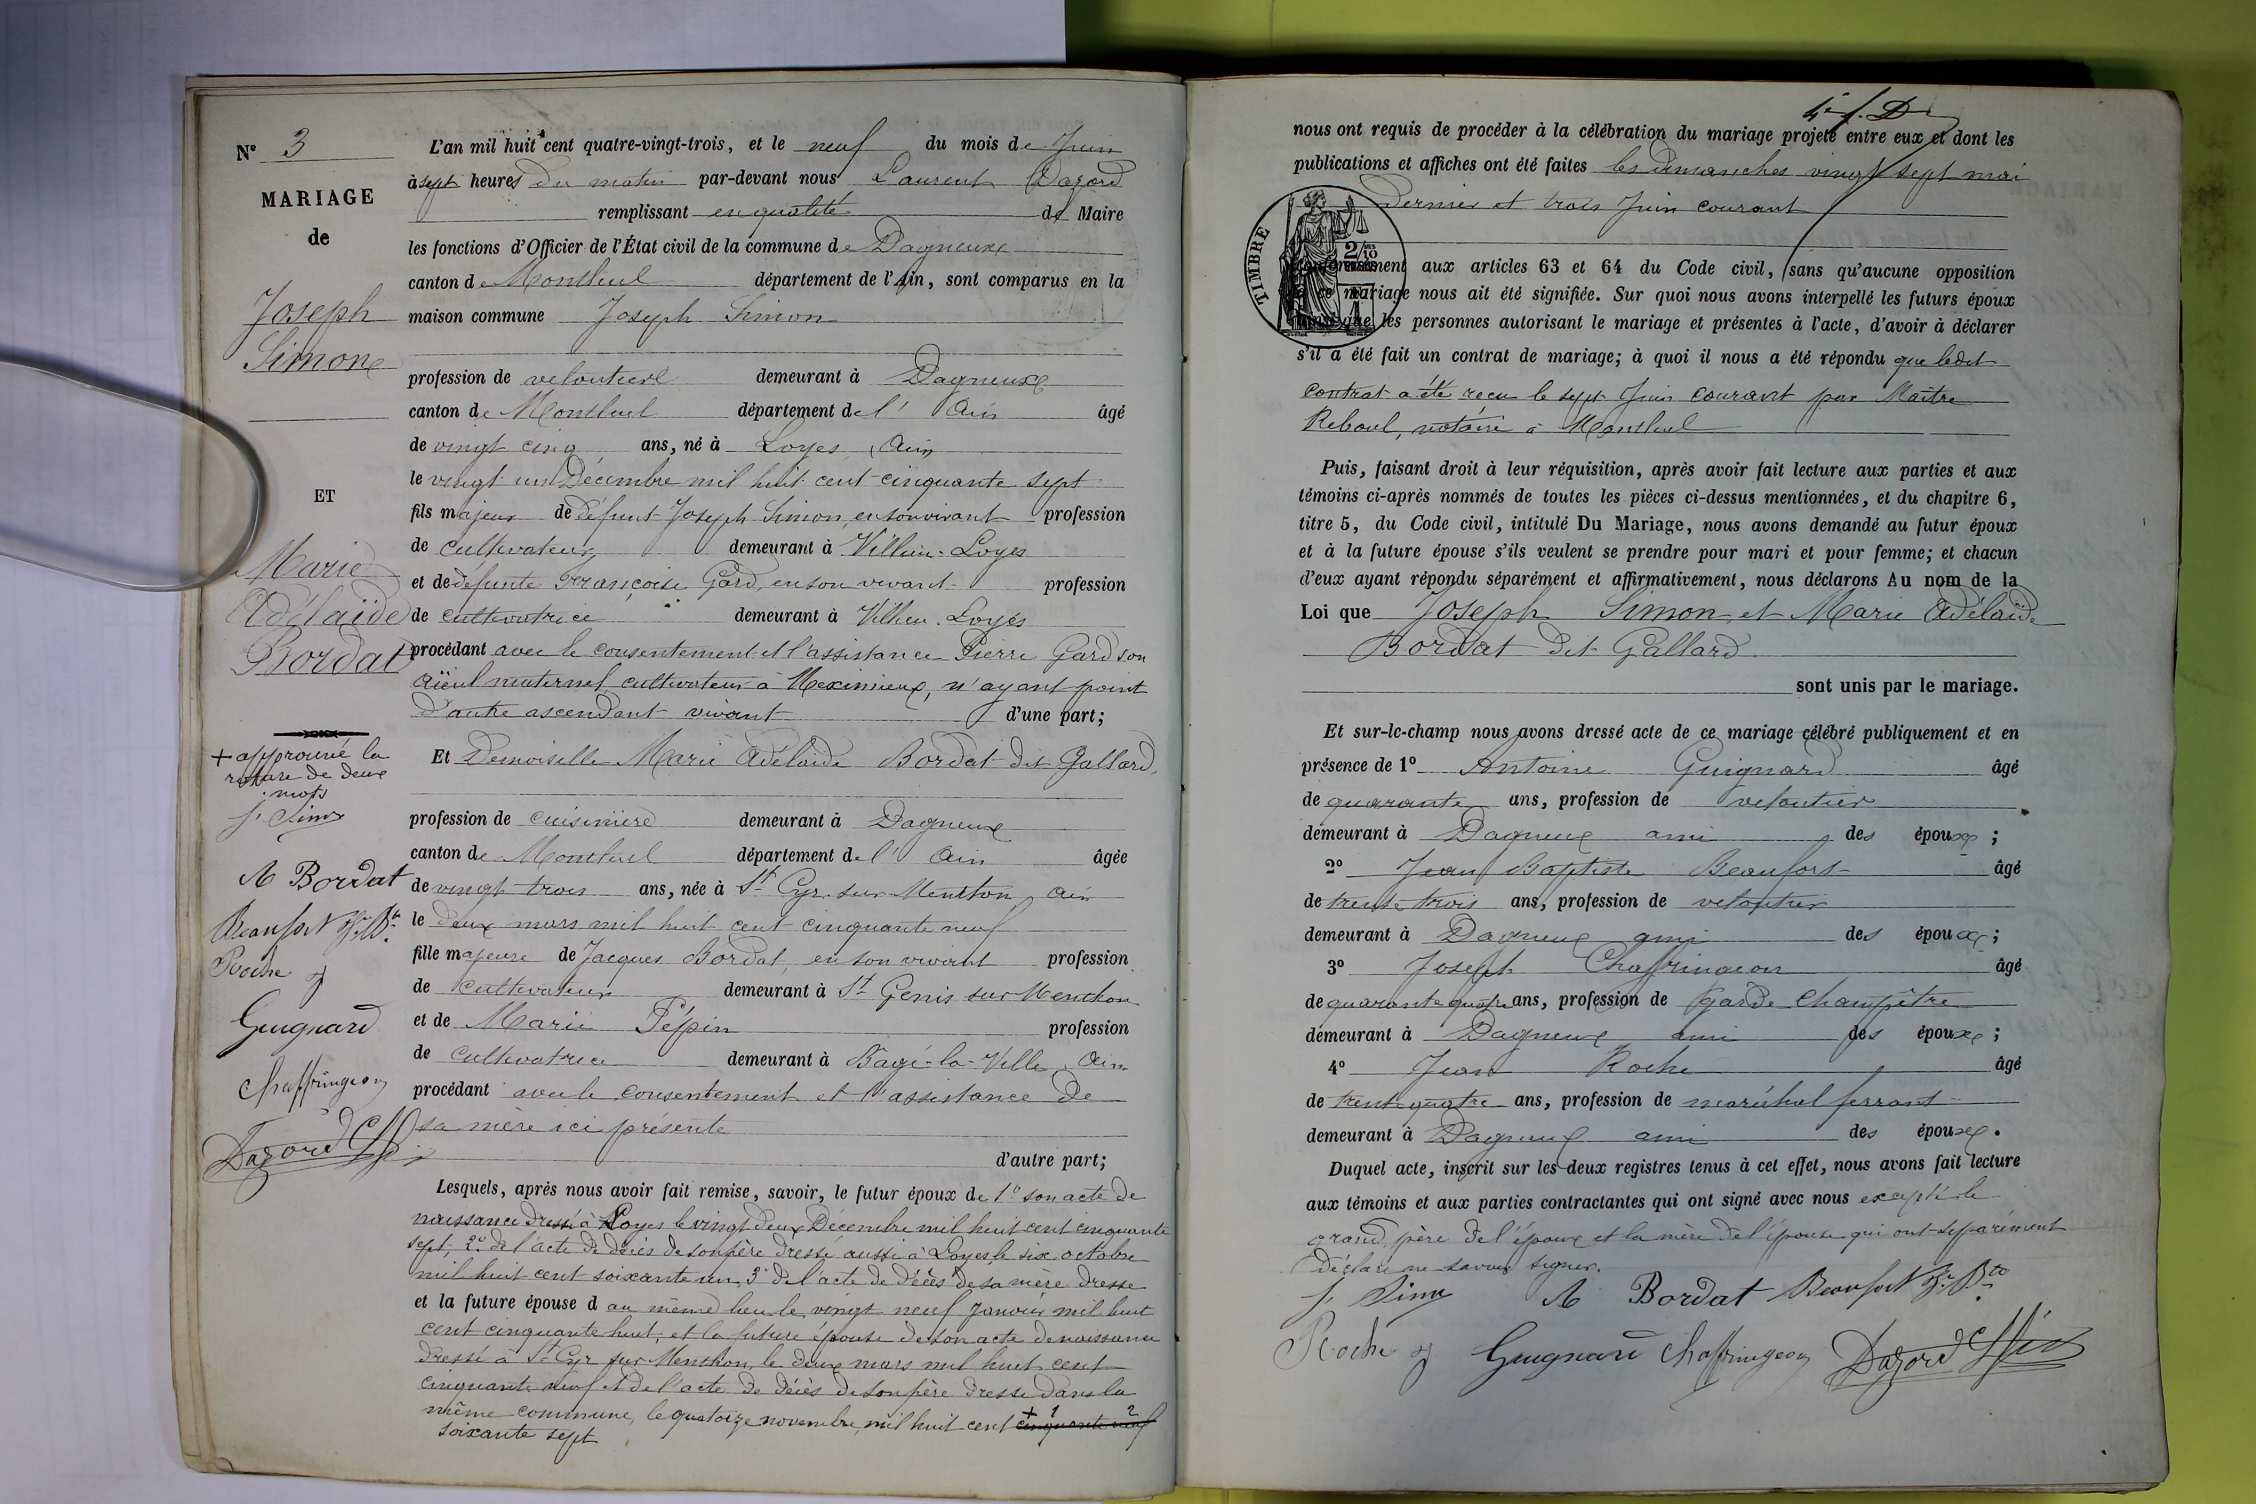 N° 3
MARIAGE
de
Joseph
Simon
ET
Marie
Adélaïde
Bordat
+ approuvé la
rature de deux
mots
J. Simon
A Bordat
Beaufort J. Bte
Roche J
Guignard
Chaffringeon
Dazord
L'an mil huit cent quatre-vingt-trois, et le neuf du mois de Juin
à sept heures du matin par-devant nous Laurent Dazord
remplissant en qualité de Maire
les fonctions d'Officier de l'État civil de la commune de Dagneux
canton de Montluel département de l'Ain, sont comparus en la
maison commune Joseph Simon
profession de veloutier demeurant à Dagneux
canton de Montluel département de l' Ain âgé
de vingt cinq ans, né à Loyes, Ain
le vingt un Décembre mil huit cent cinquante sept
fils majeur de défunt Joseph Simon, en son vivant profession
de cultivateur demeurant à Villieu-Loyes
et de défunte Françoise Gard, en son vivant profession
de cultivatrice demeurant à Villieu-Loyes
procédant avec le consentement et l'assistance Pierre Gard son
aïeul maternel cultivateur à Meximieux, n'ayant point
d'autre ascendant vivant d'une part;
Et Demoiselle Marie Adélaïde Bordat dit Gallard,
profession de cuisinière demeurant à Dagneux
canton de Montluel département de l' Ain âgée
de vingt trois ans, née à St Cyr-sur-Menthon, Ain
le deux mars mil huit cent cinquante neuf
fille majeure de Jacques Bordat, en son vivant profession
de cultivateur demeurant à St Genis sur Menthon
et de Marie Pépin profession
de cultivatrice demeurant à Bagé-la-Ville, Ain
procédant avec le consentement et l'assistance de
sa mère ici présente
d'autre part;
Lesquels, après nous avoir fait remise, savoir, le futur époux de 1° son acte de
naissance dressé à Loyes le vingt deux Décembre mil huit cent cinquante
sept, 2° de l'acte de décès de son père dressé aussi à Loyes, le six octobre
mil huit cent soixante un, 3° de l'acte de décès de sa mère dressé
et la future épouse d au même lieu le vingt neuf Janvier mil huit
cent cinquante huit, et la future épouse de son acte de naissance
dressé à St Cyr sur Menthon, le deux mars mil huit cent
cinquante neuf et de l'acte de décès de son père dressé dans la
même commune, le quatorze novembre, mil huit cent + 1 cinquante neuf 2
soixante sept
nous ont requis de procéder à la célébration du mariage projeté entre eux et dont les
publications et affiches ont été faites les dimanches vingt sept mai
dernier et trois Juin courant
TIMBRE
conformément aux articles 63 et 64 du Code civil, sans qu'aucune opposition
à ce mariage nous ait été signifiée. Sur quoi nous avons interpellé les futurs époux
ainsi que les personnes autorisant le mariage et présentes à l'acte, d'avoir à déclarer
s'il a été fait un contrat de mariage; à quoi il nous a été répondu que ledit
contrat a été reçu le sept Juin courant par Maître
Reboul, notaire à Montluel
Puis, faisant droit à leur réquisition, après avoir fait lecture aux parties et aux
témoins ci-après nommés de toutes les pièces ci-dessus mentionnées, et du chapitre 6,
titre 5, du Code civil, intitulé Du Mariage, nous avons demandé au futur époux
et à la future épouse s'ils veulent se prendre pour mari et pour femme; et chacun
d'eux ayant répondu séparément et affirmativement, nous déclarons Au nom de la
Loi que Joseph Simon, et Marie Adélaïde
Bordat dit Gallard
sont unis par le mariage.
Et sur-le-champ nous avons dressé acte de ce mariage célébré publiquement et en
présence de 1° Antoine Guignard âgé
de quarante ans, profession de veloutier
demeurant à Dagneux ami des époux;
2° Jean Baptiste Beaufort âgé
de trente trois ans, profession de veloutier
demeurant à Dagneux ami des époux;
3° Joseph Chaffringeon âgé
de quarante quatre ans, profession de garde champêtre
demeurant à Dagneux ami des époux;
4° Jean Roche âgé
de trente quatre ans, profession de maréchal ferrant
demeurant à Dagneux ami des époux.
Duquel acte, inscrit sur les deux registres tenus à cet effet, nous avons fait lecture
aux témoins et aux parties contractantes qui ont signé avec nous excepté le
grand père de l'époux et la mère de l'épouse qui ont séparément
déclaré ne savoir signer.
J. Simon A Bordat Beaufort J. Bte
Roche J Guignard Chaffringeon Dazord